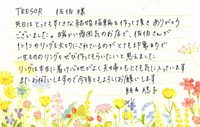 TRESOR 佐伯様
先日はとってもすてきな結婚指輪を作って頂きありがとう
ございました。暖かい雰囲気のお店で、佐伯さんが
1つ1つのリングを大切にされているのがとても印象的で
一生もののリングをぜひ作ってもらいたいと思えました
リングは本当に着け心地がよく夫婦ともとても気に入っています
またお伺いしますので今後ともよろしくお願いします